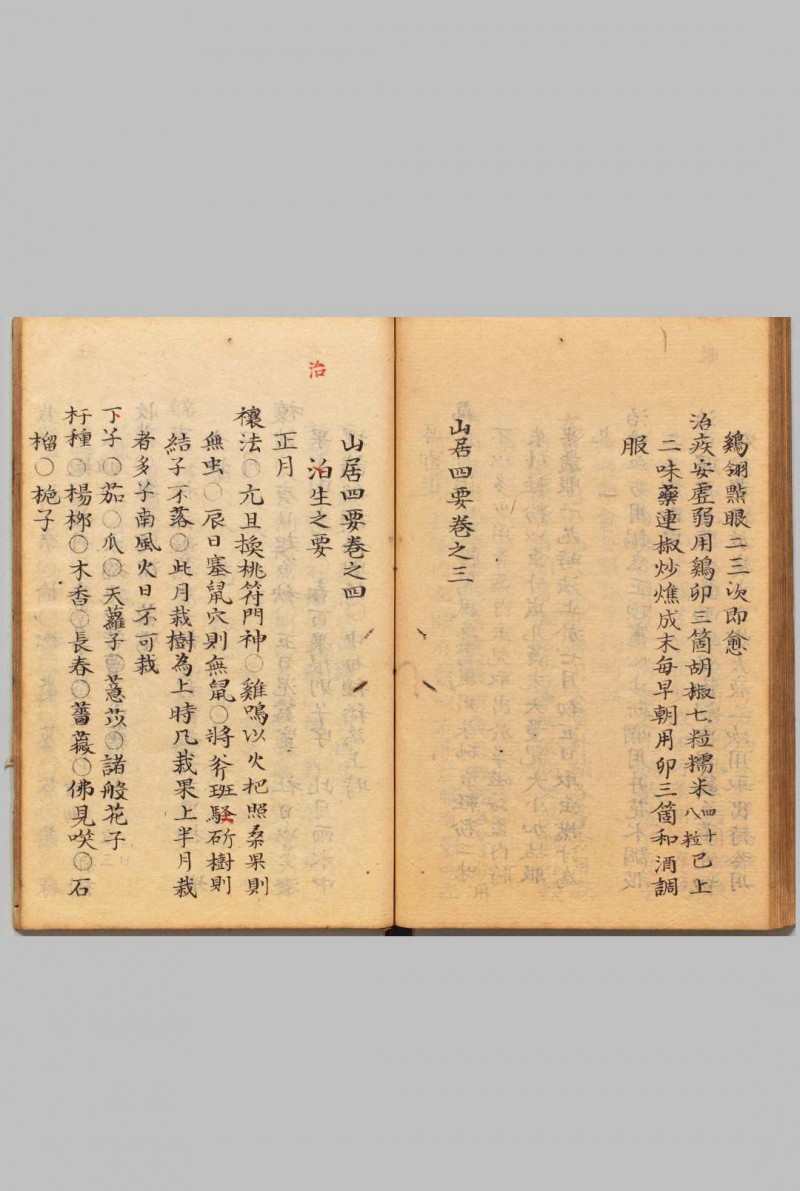 鷄翎點眼二三次即愈
治疾安虛弱用鷄卯三箇胡椒七粒糯米四十八粒已上
二味藥連椒炒燋成末每早朝用卯三箇和酒調
服
山居四要卷之三
治
山居四要卷之四
治生之要
正月
禳法〇亢旦換桃符門神〇雞鳴以火把照桑果則
無虫〇辰日塞鼠穴則無鼠〇將斧班騷斫樹則
結子不落〇此月栽樹為上時凡栽果上半月栽
者多子南風火日不可栽
下子〇茄〇瓜〇天蘿子〇薏苡〇諸般花子
扦種〇楊柳〇木香〇長春〇薔薇〇佛見咲〇石
榴〇梔子